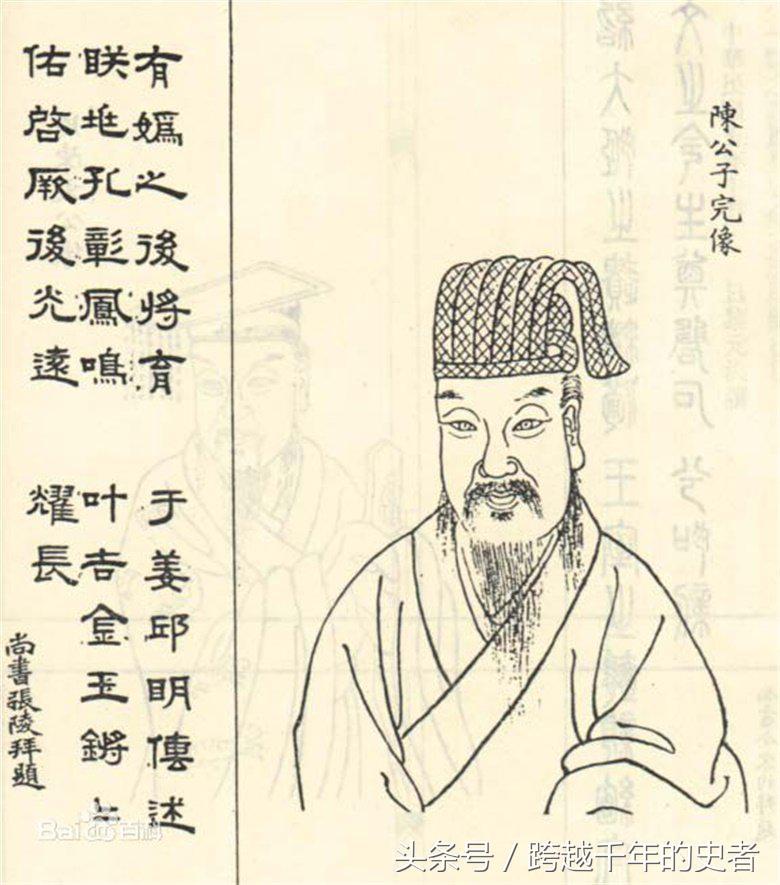 陳公子完像
有嬀之後將育 于姜邱明傳述
眹孔彰鳳鳴 叶吉金玉鏘〻
佑啓厥後光遠 耀長
尚書張陵拜題
Bai百科
头条号 / 跨越千年的史者